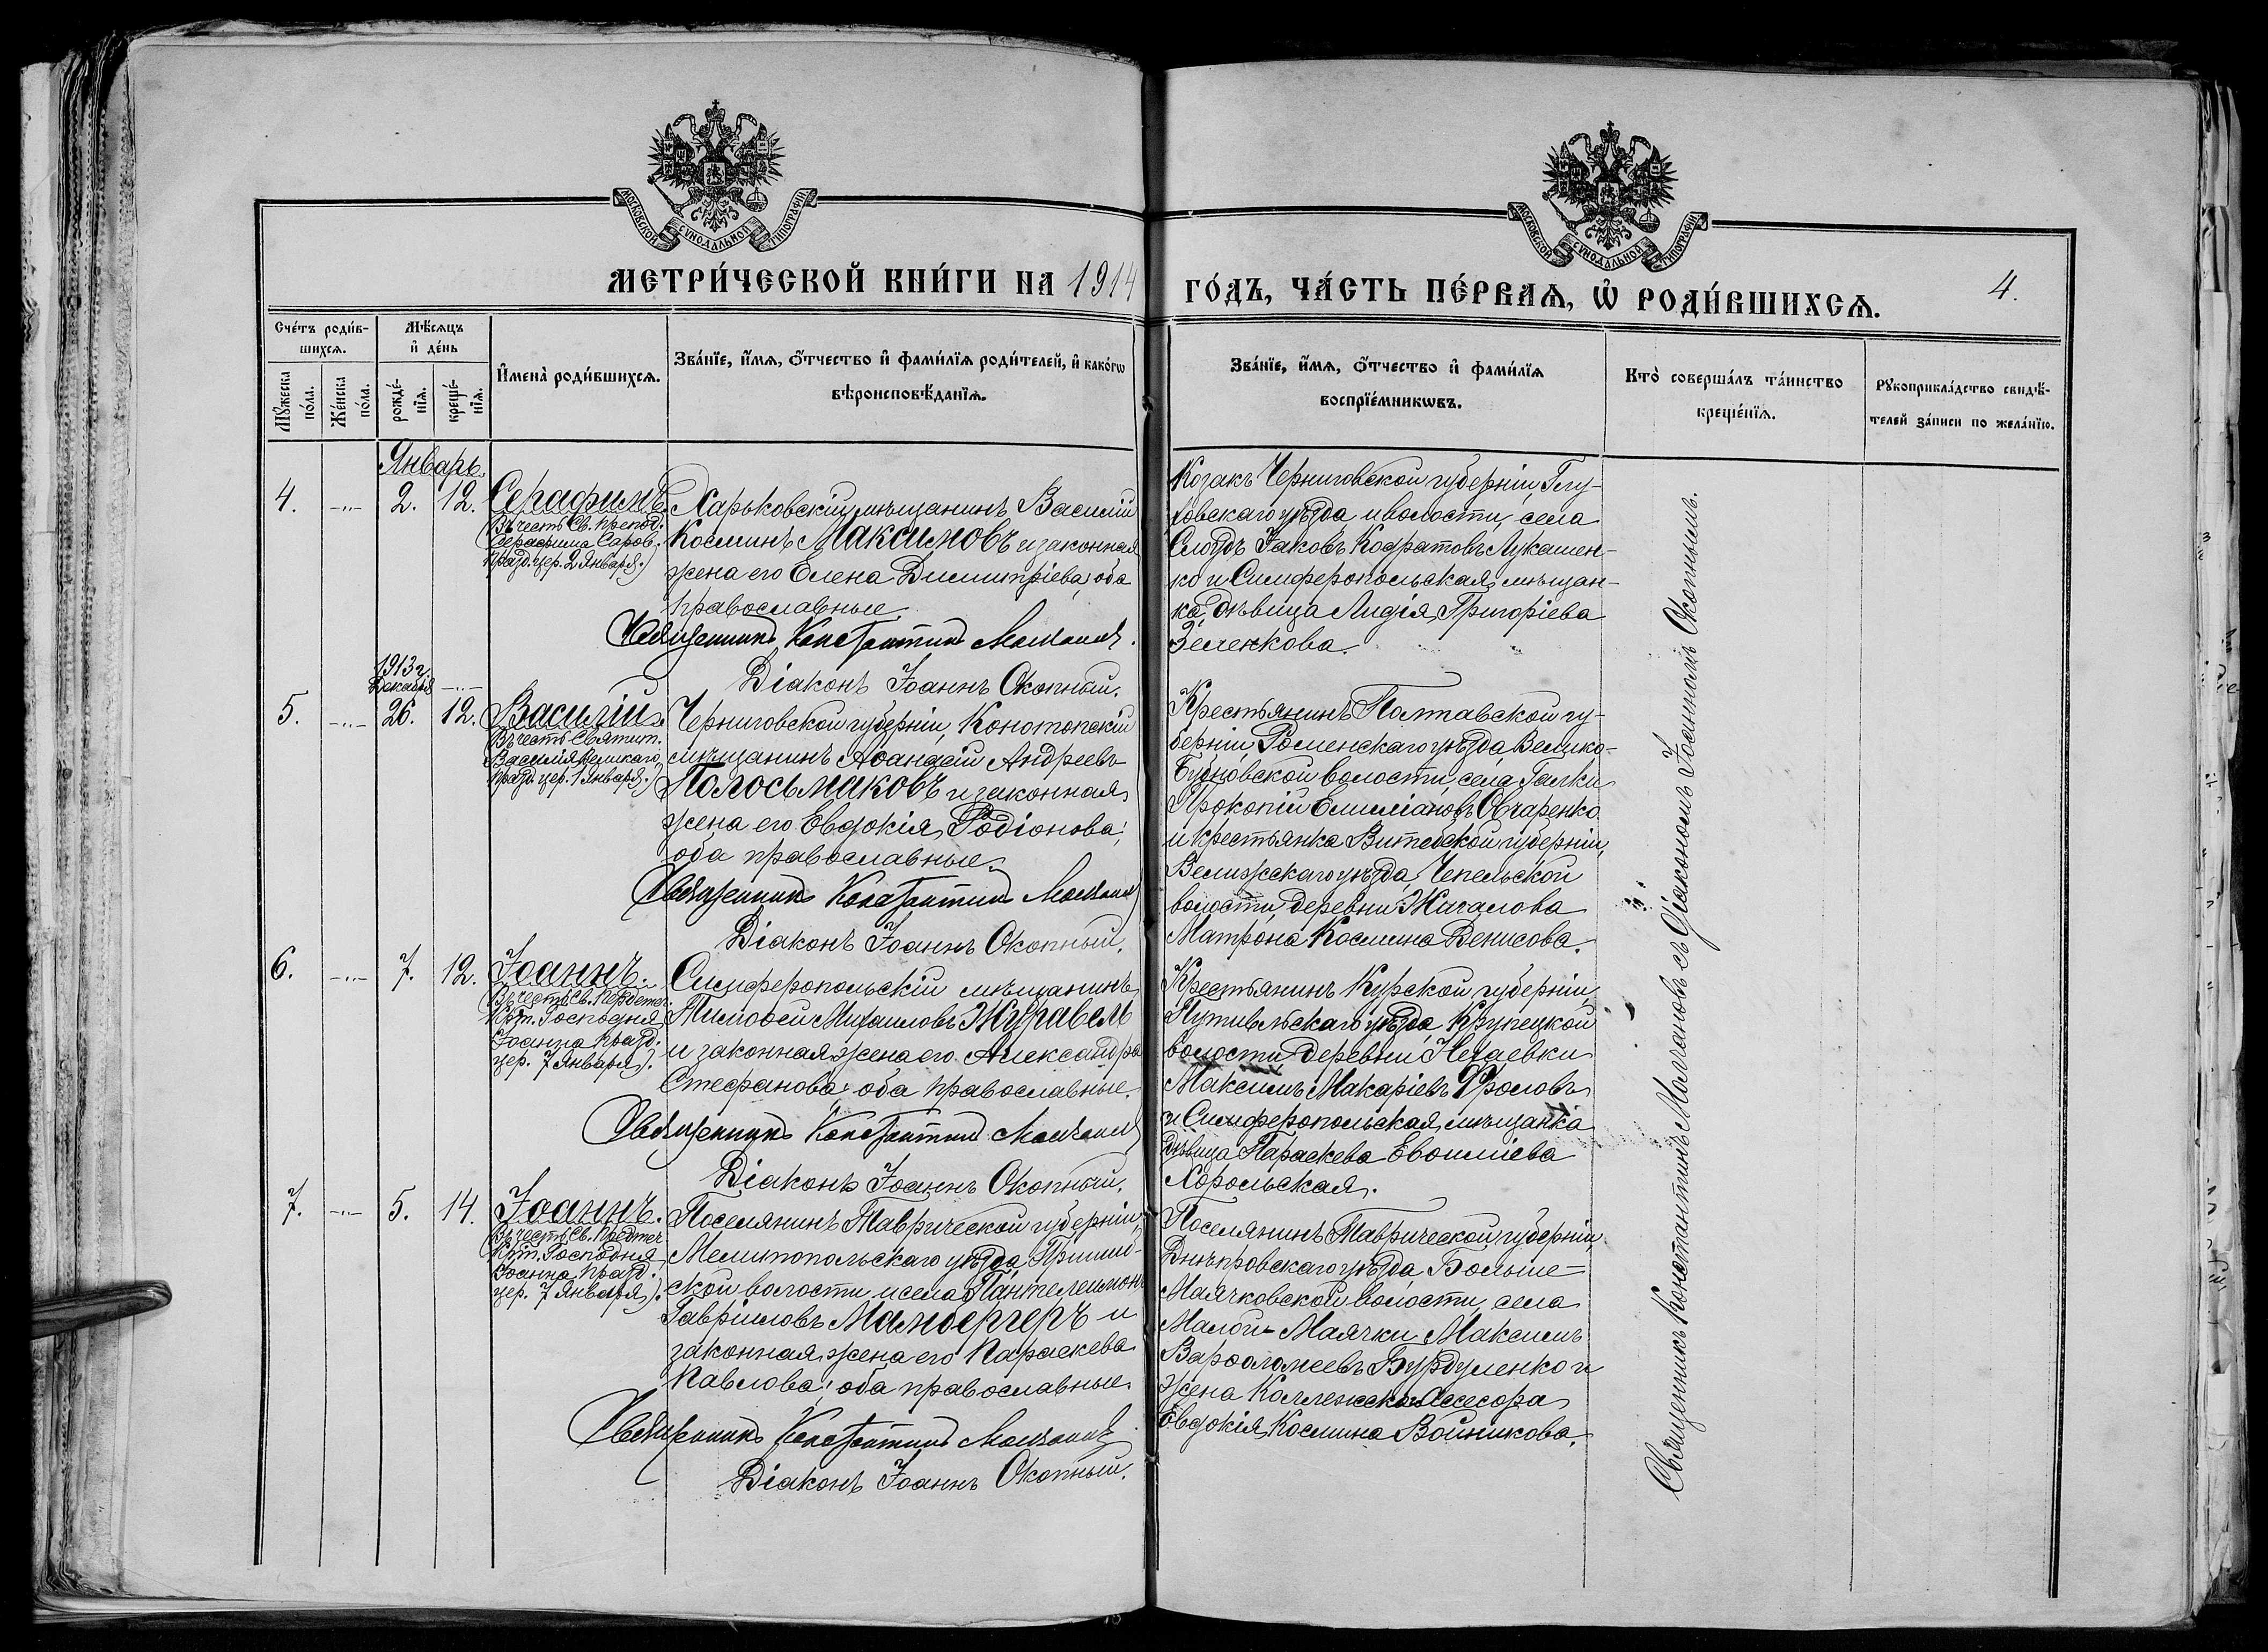 МОСКОВСКОЙ СѴНОДАЛЬНОЙ ТИПОГРАФІИ.
МОСКОВСКОЙ СѴНОДАЛЬНОЙ ТИПОГРАФІИ.
МЕТРИ́ЧЕСКОЙ КНИ́ГИ НА 1914 ГО́ДЪ, ЧА́СТЬ ПЕ́РВАѦ, Ѽ РОДИ́ВШИХСѦ.
4.
Сче́тъ роди́в-
шихсѧ.
Мѣ́сѧцъ
и҆ де́нь
Мꙋ́жеска
по́ла.
Же́нска
по́ла.
рожде́-
нїѧ.
креще́-
нїѧ.
И҆мена̀ роди́вшихсѧ.
Зва́нїе, и҆́мѧ, о҆́тчество и҆ фами́лїѧ роди́телей, и҆ како́гѡ
вѣроисповѣ́данїѧ.
Зва́нїе, и҆́мѧ, о҆́тчество и҆ фами́лїѧ
воспрїе́мникѡвъ.
Кто̀ соверша́лъ та́инство
креще́нїѧ.
Рꙋкоприкла́дство свидѣ́-
телей за́писи по жела́нїю.
Январь.
4. -"- 2. 12.
Серафимъ.
(Въ честь Св. препод.
Серафима Саров.
празд. цер. 2 Января.)
Харьковскій мѣщанинъ Василій
Косминъ Максимовъ и законная
жена его Елена Димитріева; оба
православные
Священникъ Константинъ Молчановъ.
Діаконъ Іоаннъ Окопный.
Козакъ Черниговской губерніи, Глу-
ховскаго уѣзда и волости, села
Слоутъ Іаковъ Кодратовъ Лукашен-
ко и Симферопольская мѣщан-
ка, дѣвица Лидія Григоріева
Зеленкова.
1913 г.
Декабря -"-
5. -"- 26. 12.
Василій.
(Въ честь Святит.
Василія Великаго,
празд. цер. 1 Января.)
Черниговской губерніи, Конотопскій
мѣщанинъ Аѳанасій Андреевъ
Полосьмаковъ и законная
жена его Евдокія Родіонова;
оба православные.
Священникъ Константинъ Молчановъ
Діаконъ Іоаннъ Окопный.
Крестьянинъ Полтавской гу-
берніи, Роменскаго уѣзда, Велико-
Бубновской волости, села Галки
Прокопій Емиліановъ Овчаренко
и крестьянка Витебской губерніи,
Велижскаго уѣзда, Чепельской
волости, деревни Жигалова
Матрона Космина Денисова.
6. -"- 7. 12.
Іоаннъ.
(Въ честь Св. Предтеч.
Крт. Господня
Іоанна празд.
цер. 7 Января).
Симферопольскій мѣщанинъ
Тимоѳей Михаиловъ Журавель
и законная жена его Александра
Стефанова; оба православные.
Священникъ Константинъ Молчановъ
Діаконъ Іоаннъ Окопный.
Крестьянинъ Курской губерніи,
Путивльскаго уѣзда, Крупецкой
волости, деревни Нечаевки
Максимъ Макаріевъ Фроловъ
и Симферопольская мѣщанка
дѣвица Параскева Евфиміева
Хорольская.
7. -"- 5. 14.
Іоаннъ.
(Въ честь Св. Предтеч.
Крт. Господня
Іоанна празд.
цер. 7 Января).
Поселянинъ Таврической губерніи,
Мелитопольскаго уѣзда, Пришиб-
ской волости и села Пантелеимонъ
Гавріиловъ Мамбергеръ и
законная жена его Параскева
Павлова; оба православные.
Священникъ Константинъ Молчановъ
Діаконъ Іоаннъ Окопный.
Поселянинъ Таврической губерніи,
Днѣпровскаго уѣзда, Больше-
Маячковской волости, села
Малой-Маячки Максимъ
Варѳоломеевъ Бурдуленко и
жена Коллежскаго Асессора
Евдокія Космина Войникова.
Священникъ Константинъ Молчановъ съ Діакономъ Іоанномъ Окопнымъ.